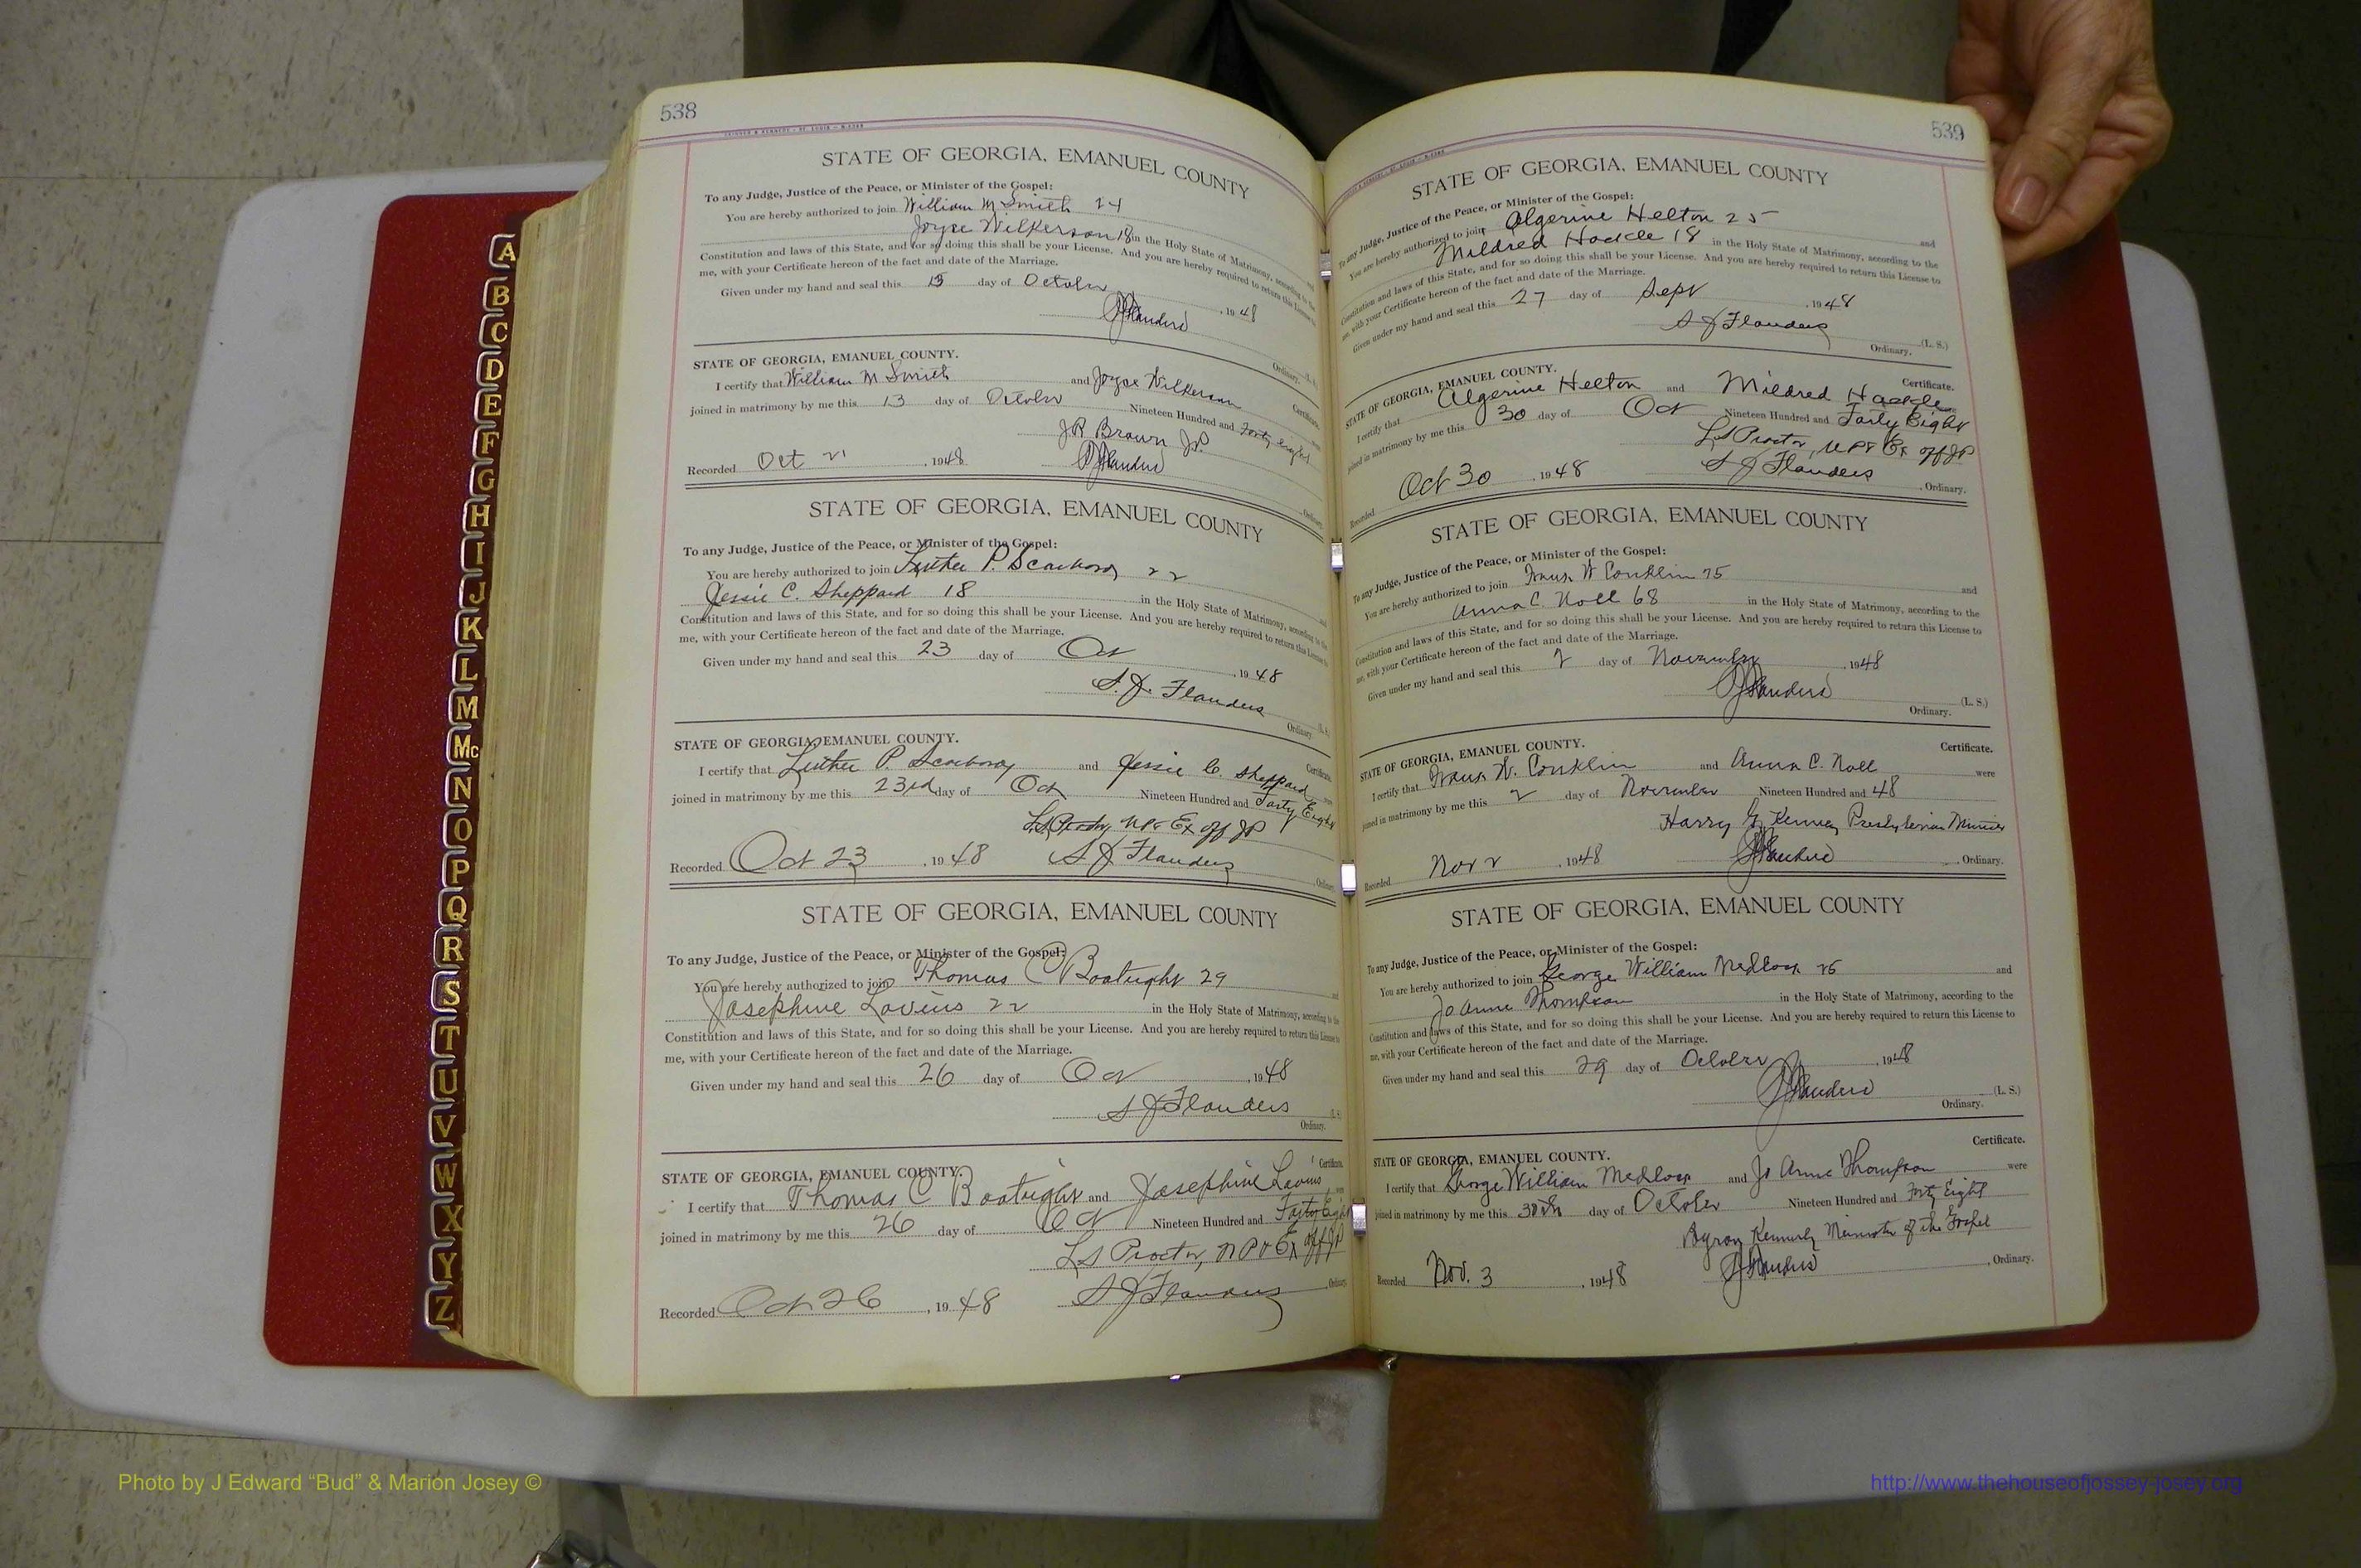 538
STATE OF GEORGIA, EMANUEL COUNTY
To any Judge, Justice of the Peace, or Minister of the Gospel:
You are hereby authorized to join William M Smith 24
Joyce Wilkerson 18 in the Holy State of Matrimony, according to the
Constitution and laws of this State, and for so doing this shall be your License. And you are hereby required to return this License to
me, with your Certificate hereon of the fact and date of the Marriage.
Given under my hand and seal this 13 day of October, 1948
SJ Flanders
Ordinary. (L. S.)
STATE OF GEORGIA, EMANUEL COUNTY.
Certificate.
I certify that William M Smith and Joyce Wilkerson
joined in matrimony by me this 13 day of October Nineteen Hundred and Forty Eight
J R Brown J.P.
Recorded Oct 21, 1948 SJ Flanders
Ordinary.
STATE OF GEORGIA, EMANUEL COUNTY
To any Judge, Justice of the Peace, or Minister of the Gospel:
You are hereby authorized to join Luther P. Scarboro 22
Jessie C. Sheppard 18 in the Holy State of Matrimony, according to the
Constitution and laws of this State, and for so doing this shall be your License. And you are hereby required to return this License to
me, with your Certificate hereon of the fact and date of the Marriage.
Given under my hand and seal this 23 day of Oct, 1948
S. J. Flanders
Ordinary. (L. S.)
STATE OF GEORGIA, EMANUEL COUNTY.
Certificate.
I certify that Luther P. Scarboro and Jessie C. Sheppard
joined in matrimony by me this 23rd day of Oct Nineteen Hundred and Forty Eight
NP & Ex off JP
Recorded Oct 23, 1948 S J Flanders
Ordinary.
STATE OF GEORGIA, EMANUEL COUNTY
To any Judge, Justice of the Peace, or Minister of the Gospel:
You are hereby authorized to join Thomas C Boatright 29 and
Josephine Lavins 22 in the Holy State of Matrimony, according to the
Constitution and laws of this State, and for so doing this shall be your License. And you are hereby required to return this License to
me, with your Certificate hereon of the fact and date of the Marriage.
Given under my hand and seal this 26 day of Oct, 1948
S J Flanders
(L. S.)
Ordinary.
Certificate.
STATE OF GEORGIA, EMANUEL COUNTY.
I certify that Thomas C Boatright and Josephine Lavins
joined in matrimony by me this 26 day of Oct Nineteen Hundred and Forty Eight
L S Proctor, NP & Ex off JP
Recorded Oct 26, 1948 S J Flanders
Ordinary.
539
STATE OF GEORGIA, EMANUEL COUNTY
To any Judge, Justice of the Peace, or Minister of the Gospel:
You are hereby authorized to join Algerine Helton 25 and
Mildred Hackle 18 in the Holy State of Matrimony, according to the
Constitution and laws of this State, and for so doing this shall be your License. And you are hereby required to return this License to
me, with your Certificate hereon of the fact and date of the Marriage.
Given under my hand and seal this 27 day of Sept, 1948
S J Flanders
(L. S.)
Ordinary.
STATE OF GEORGIA, EMANUEL COUNTY.
Certificate.
I certify that Algerine Helton and Mildred Hackle
joined in matrimony by me this 30 day of Oct Nineteen Hundred and Forty Eight
L S Proctor, NP & Ex off JP
Recorded Oct 30, 1948 S J Flanders
Ordinary.
STATE OF GEORGIA, EMANUEL COUNTY
To any Judge, Justice of the Peace, or Minister of the Gospel:
You are hereby authorized to join W Conklin 75 and
Anna C. Noll 68 in the Holy State of Matrimony, according to the
Constitution and laws of this State, and for so doing this shall be your License. And you are hereby required to return this License to
me, with your Certificate hereon of the fact and date of the Marriage.
Given under my hand and seal this 2 day of November, 1948
SJ Flanders
(L. S.)
Ordinary.
STATE OF GEORGIA, EMANUEL COUNTY.
Certificate.
I certify that W. Conklin and Anna C. Noll were
joined in matrimony by me this 2 day of November Nineteen Hundred and 48
Harry G. Kenney Presbyterian Minister
Recorded Nov 2, 1948 SJ Flanders Ordinary.
STATE OF GEORGIA, EMANUEL COUNTY
To any Judge, Justice of the Peace, or Minister of the Gospel:
You are hereby authorized to join George William Medlock and
Jo Anne Thompson in the Holy State of Matrimony, according to the
Constitution and laws of this State, and for so doing this shall be your License. And you are hereby required to return this License to
me, with your Certificate hereon of the fact and date of the Marriage.
Given under my hand and seal this 29 day of October, 1948
SJ Flanders
(L. S.)
Ordinary.
Certificate.
STATE OF GEORGIA, EMANUEL COUNTY.
I certify that George William Medlock and Jo Anne Thompson were
joined in matrimony by me this 30th day of October Nineteen Hundred and Forty Eight
Byron Kennerly Minister of the Gospel
Recorded Nov. 3, 1948 SJ Flanders, Ordinary.
A
B
C
D
E
F
G
H
I
J
K
L
M
Mc
N
O
P
Q
R
S
T
U
V
W
X
Y
Z
Photo by J Edward “Bud” & Marion Josey ©
http://www.thehouseofjossey-josey.org